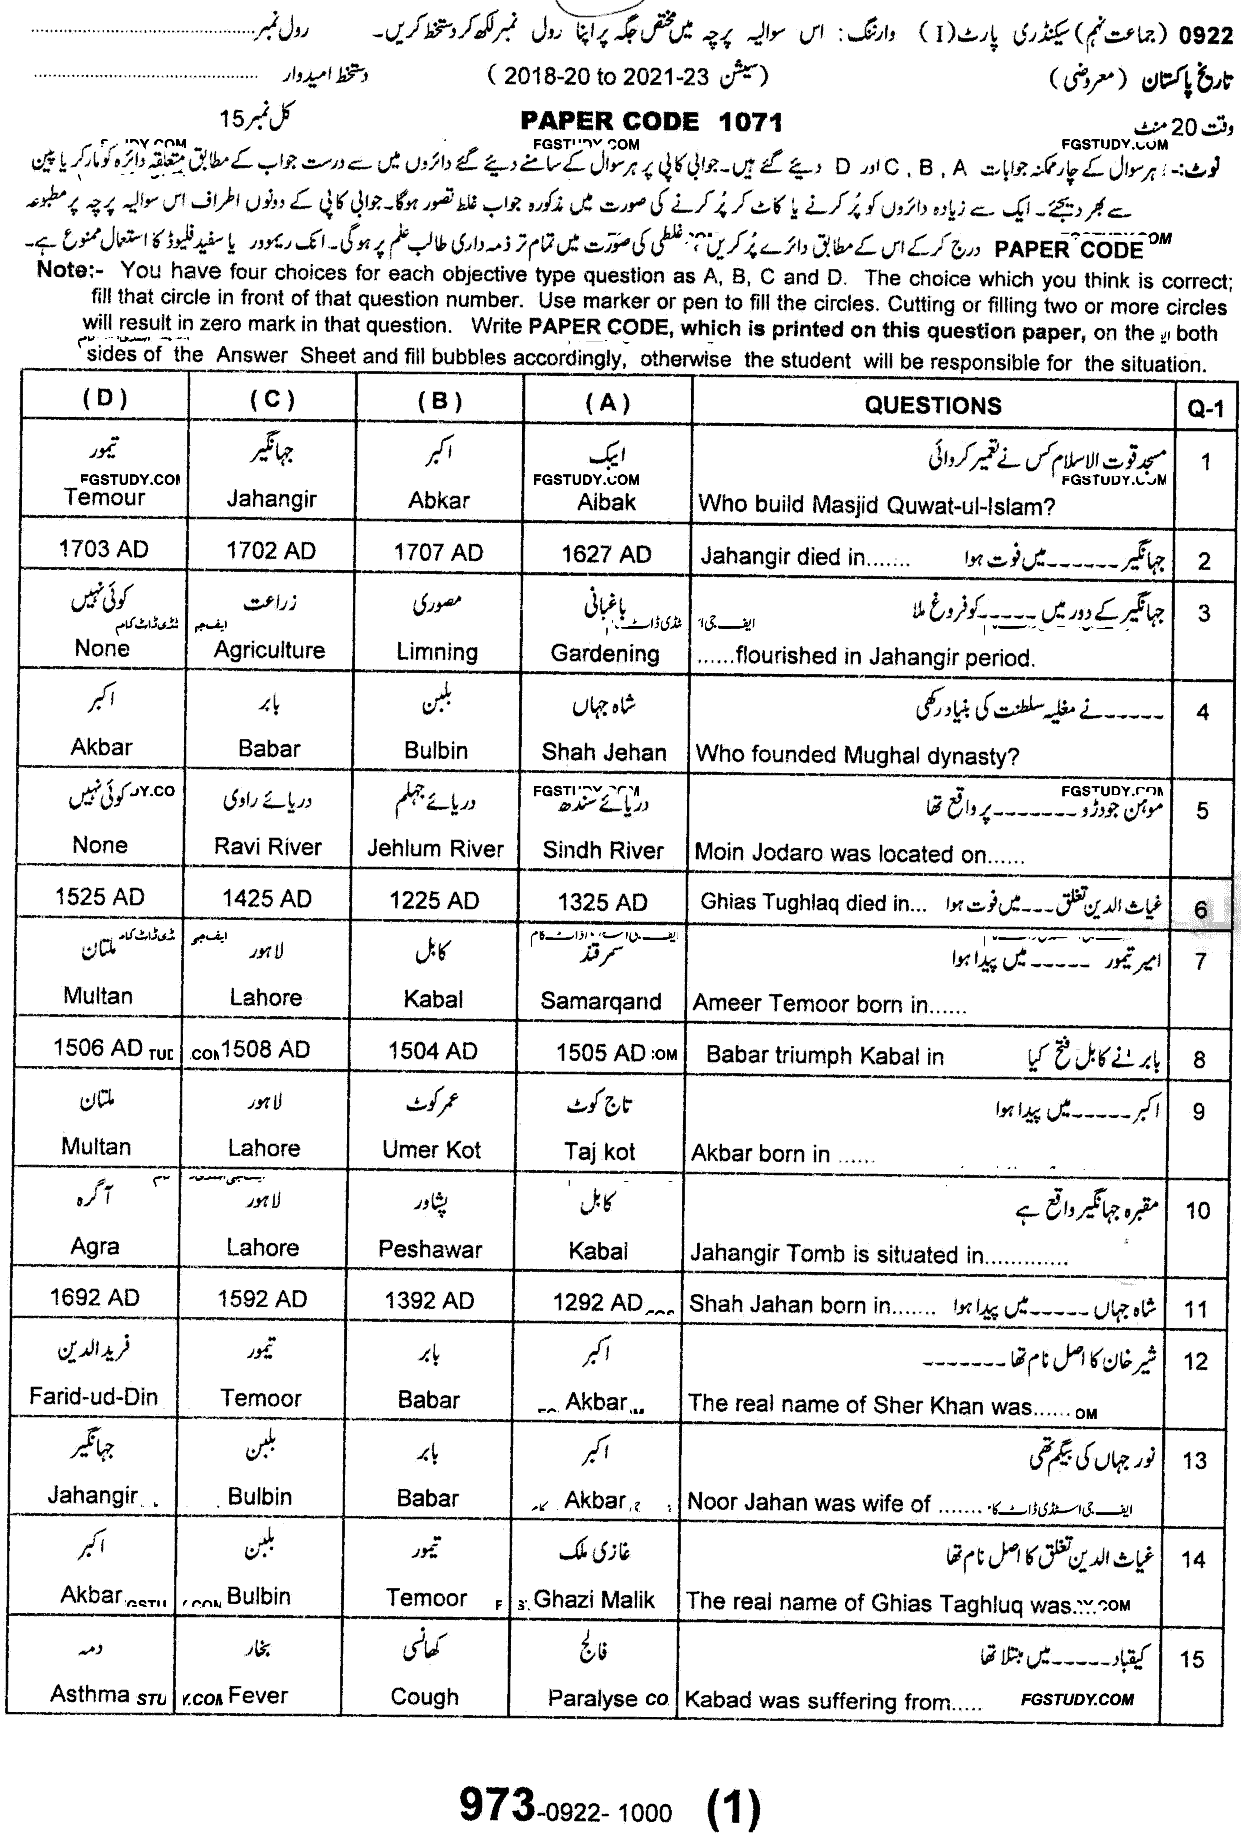 0922 (جماعت نہم) سیکنڈری پارٹ (I) وارننگ: اس سوالیہ پرچہ میں مختص جگہ پر اپنا رول نمبر لکھ کر دستخط کریں۔ رول نمبر
تاریخ پاکستان (معروضی) (سیشن 2018-20 to 2021-23) دستخط امیدوار
وقت 20 منٹ PAPER CODE 1071 کل نمبر 15
FGSTUDY.COM
نوٹ:- ہر سوال کے چار ممکنہ جوابات A , B , C اور D دیئے گئے ہیں۔ جوابی کاپی پر ہر سوال کے سامنے دیئے گئے دائروں میں سے درست جواب کے مطابق متعلقہ دائرہ کو مارکر یا پین
سے بھر دیجئے۔ ایک سے زیادہ دائروں کو پُر کرنے یا کاٹ کر پُر کرنے کی صورت میں مذکورہ جواب غلط تصور ہوگا۔ جوابی کاپی کے دونوں اطراف اس سوالیہ پرچہ پر مطبوعہ
PAPER CODE درج کر کے اس کے مطابق دائرے پُر کریں، غلطی کی صورت میں تمام تر ذمہ داری طالب علم پر ہوگی۔ انک ریموور یا سفید فلیوڈ کا استعمال ممنوع ہے۔
Note:- You have four choices for each objective type question as A, B, C and D. The choice which you think is correct;
fill that circle in front of that question number. Use marker or pen to fill the circles. Cutting or filling two or more circles
will result in zero mark in that question. Write PAPER CODE, which is printed on this question paper, on the both
sides of the Answer Sheet and fill bubbles accordingly, otherwise the student will be responsible for the situation.
(D) (C) (B) (A) QUESTIONS Q-1
تیمور جہانگیر اکبر ایبک مسجد قوت الاسلام کس نے تعمیر کروائی 1
FGSTUDY.COM FGSTUDY.COM
Temour Jahangir Abkar Aibak Who build Masjid Quwat-ul-Islam?
1703 AD 1702 AD 1707 AD 1627 AD Jahangir died in....... جہانگیر ------ میں فوت ہوا 2
کوئی نہیں زراعت مصوری باغبانی جہانگیر کے دور میں ----- کو فروغ ملا 3
None Agriculture Limning Gardening ......flourished in Jahangir period.
اکبر بابر بلبن شاہ جہاں ----- نے مغلیہ سلطنت کی بنیاد رکھی 4
Akbar Babar Bulbin Shah Jehan Who founded Mughal dynasty?
FGSTUDY.COM
کوئی نہیں دریائے راوی دریائے جہلم دریائے سندھ موہن جودڑو ------- پر واقع تھا 5
None Ravi River Jehlum River Sindh River Moin Jodaro was located on......
1525 AD 1425 AD 1225 AD 1325 AD Ghias Tughlaq died in... غیاث الدین تغلق --- میں فوت ہوا 6
ملتان لاہور کابل سمرقند امیر تیمور ----- میں پیدا ہوا 7
Multan Lahore Kabal Samarqand Ameer Temoor born in......
1506 AD 1508 AD 1504 AD 1505 AD Babar triumph Kabal in بابر نے کابل فتح کیا 8
ملتان لاہور عمر کوٹ تاج کوٹ اکبر ----- میں پیدا ہوا 9
Multan Lahore Umer Kot Taj kot Akbar born in ......
آگرہ لاہور پشاور کابل مقبرہ جہانگیر واقع ہے 10
Agra Lahore Peshawar Kabal Jahangir Tomb is situated in.............
1692 AD 1592 AD 1392 AD 1292 AD Shah Jahan born in....... شاہ جہاں ----- میں پیدا ہوا 11
فرید الدین تیمور بابر اکبر شیر خان کا اصل نام تھا ------- 12
Farid-ud-Din Temoor Babar Akbar The real name of Sher Khan was......
جہانگیر بلبن بابر اکبر نور جہاں کی بیگم تھی 13
Jahangir Bulbin Babar Akbar Noor Jahan was wife of .......
اکبر بلبن تیمور غازی ملک غیاث الدین تغلق کا اصل نام تھا 14
Akbar Bulbin Temoor Ghazi Malik The real name of Ghias Taghluq was.....
دمہ بخار کھانسی فالج کیقباد ----- میں مبتلا تھا 15
Asthma Fever Cough Paralyse Kabad was suffering from..... FGSTUDY.COM
973-0922- 1000 (1)